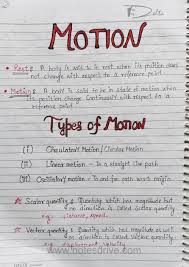 Date
MOTION
• Rest : A body is said to be in rest when its position does
not change with respect to a reference point.
• Motion : A body is said to be in state of motion when
its position change continuously with respect to a
reference point.
Types of MOTION
(I) Circulatory Motion / Circular Motion
(II) Linear motion - In a straight line path
(III) Oscillatory motion - To and fro path
★ Scalar quantity : Quantity which has magnitude but
no direction is called Scalar quantity
e.g. distance, speed.
★ Vector quantity : Quantity which has magnitude as well
as direction is called Vector quantity
e.g. Displacement, Velocity
www.notesdrive.com